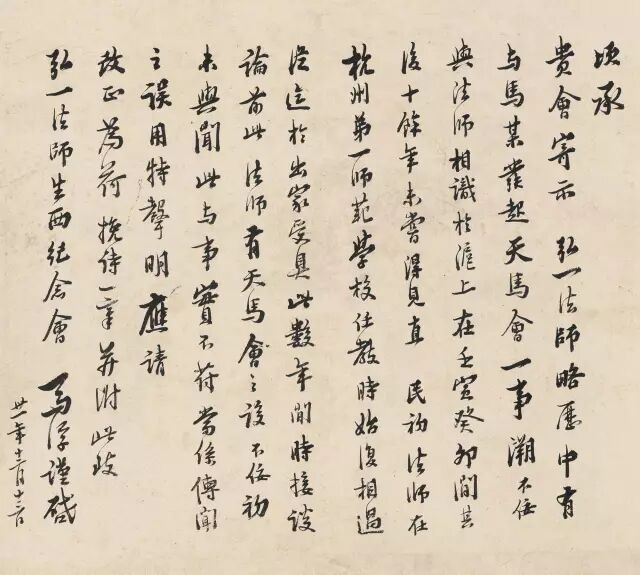 頃承
貴會寄示　弘一法師略歷中有
与馬某發起天馬會一事溯不佞
與法師相識於滬上在壬寅癸卯間其
後十餘年未嘗得見直　民初法師在
杭州第一師範學校任教時始復相過
從迄於出家受具此數年間時接談
論前此法師有天馬會之設不佞初
未與聞此与事實不符當係傳聞
之誤用特聲明應請
改正為荷挽詩一章並附此致
弘一法師生西紀念會　馬浮謹啟
卅一年十二月十二日